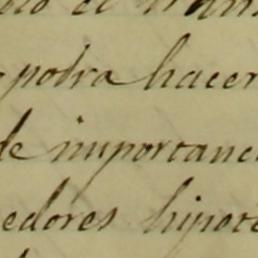 el
podra hacer
de importanc
edores hipote